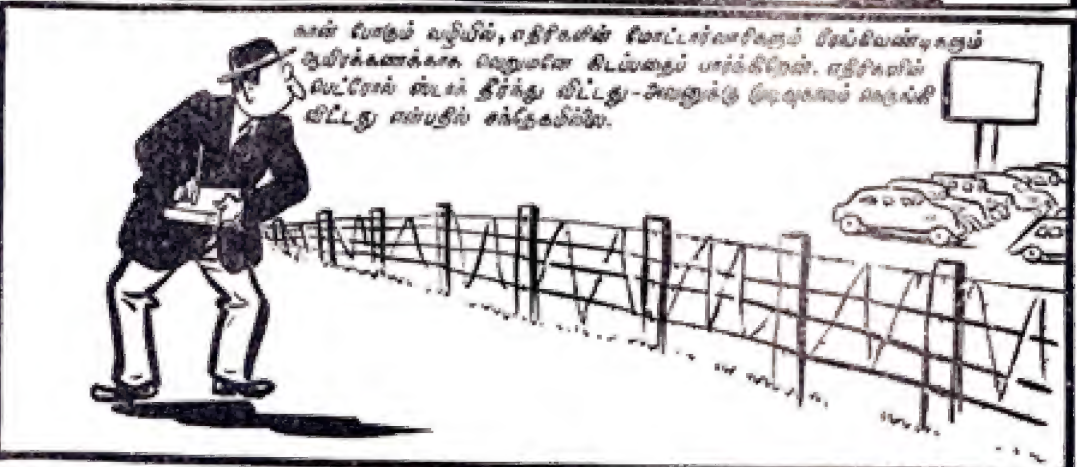 நான் போகும் வழியில், எதிரிகளின் மோட்டார்லாரிகளும் பீரங்கிவண்டிகளும்
ஆயிரக்கணக்காக வெறுமனே கிடப்பதைப் பார்க்கிறேன். எதிரிகளின்
பெட்ரோல் ஸ்டாக் தீர்ந்து விட்டது-அவனுக்கு முடிவுகாலம் நெருங்கி
விட்டது என்பதில் சந்தேகமில்லை.